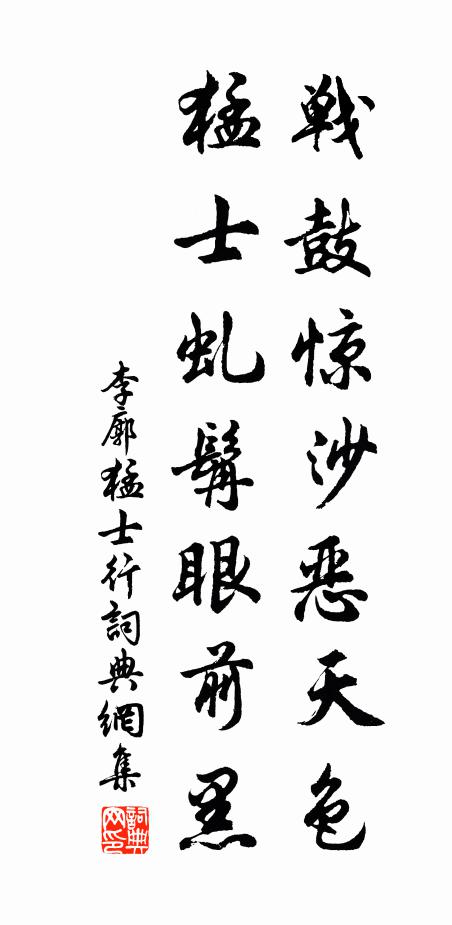 戦鼓惊沙恶天色
猛士虬髯眼前黑
李廓猛士行詞典網集
詞典网印